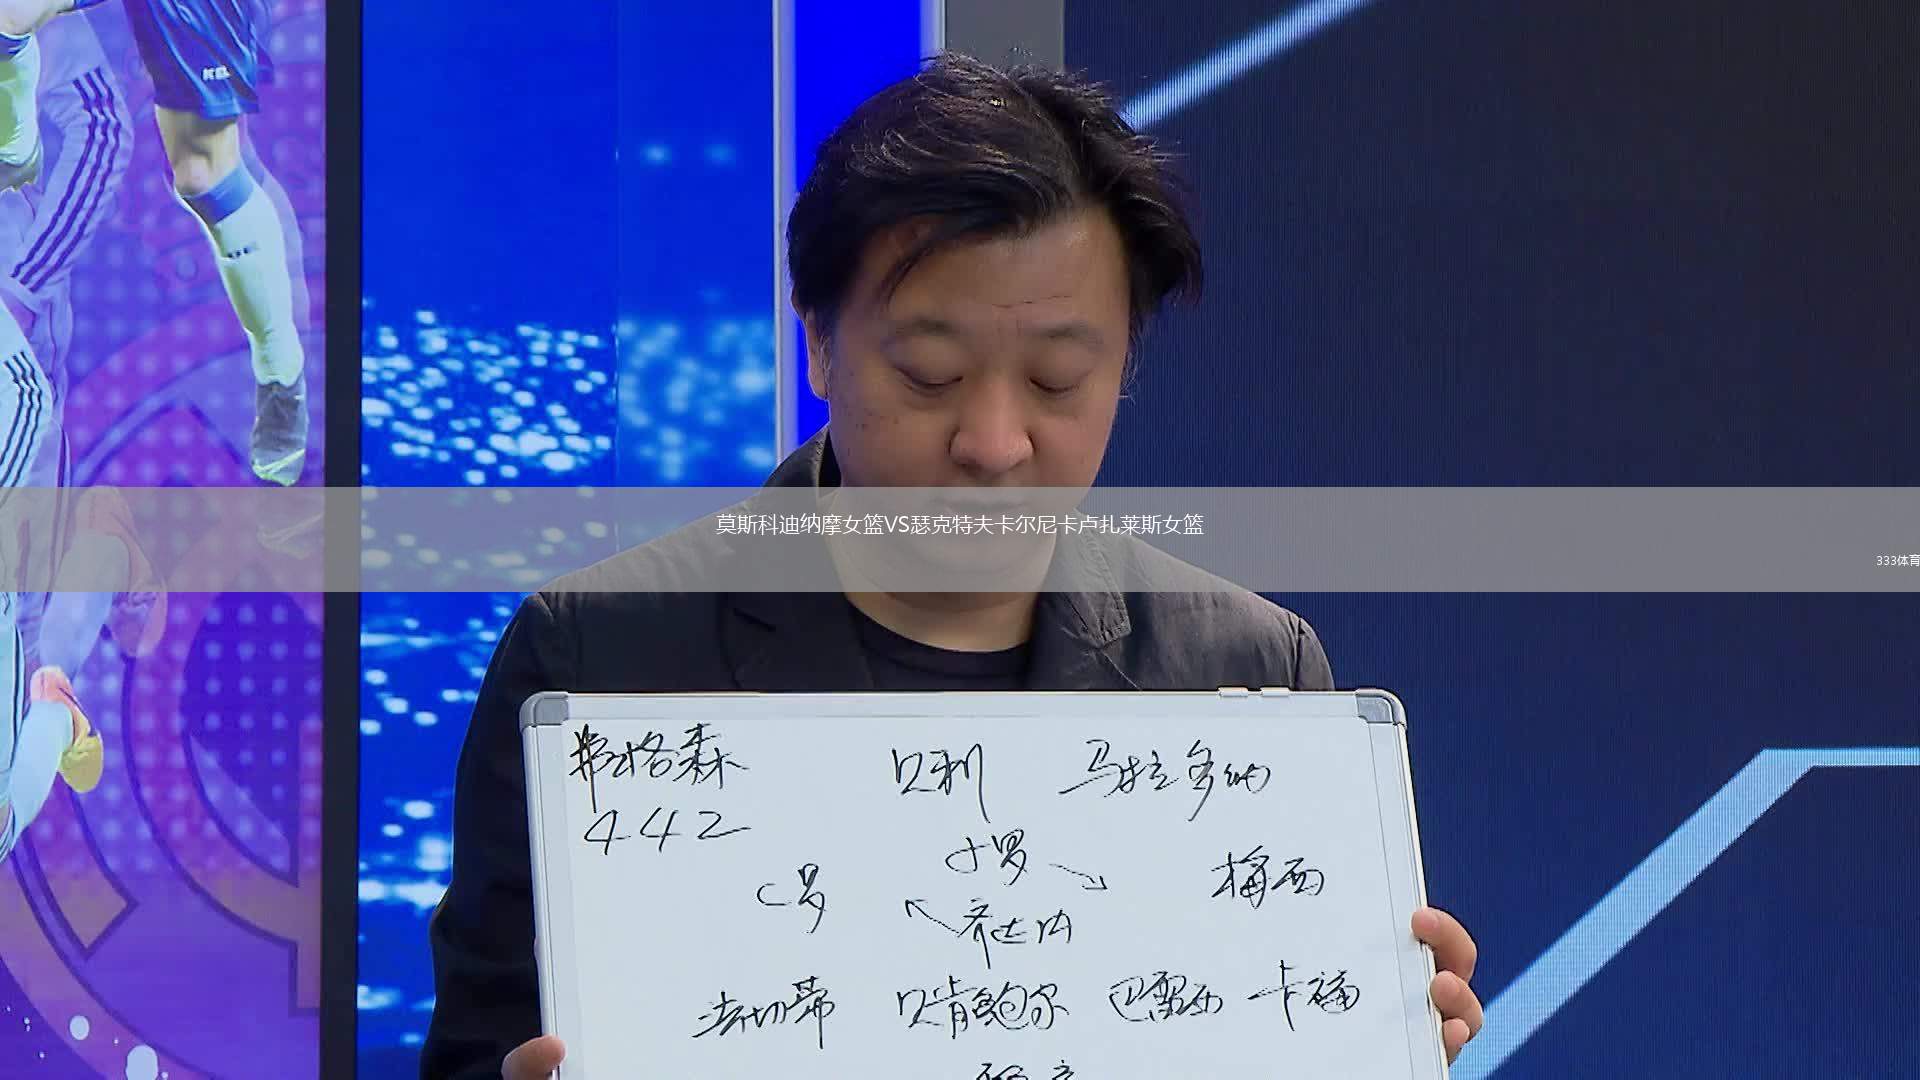 莫斯科迪纳摩女篮VS瑟克特夫卡尔尼卡卢扎莱斯女篮
333体育
弗格森 贝利 马拉多纳
442
小罗
C罗 梅西
齐达内
法切蒂 贝肯鲍尔 巴雷西 卡福